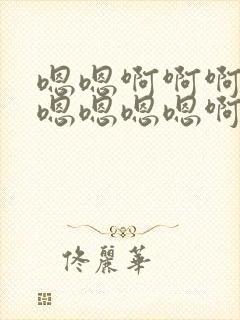 嗯嗯啊啊啊
嗯嗯嗯嗯啊
佟麗華